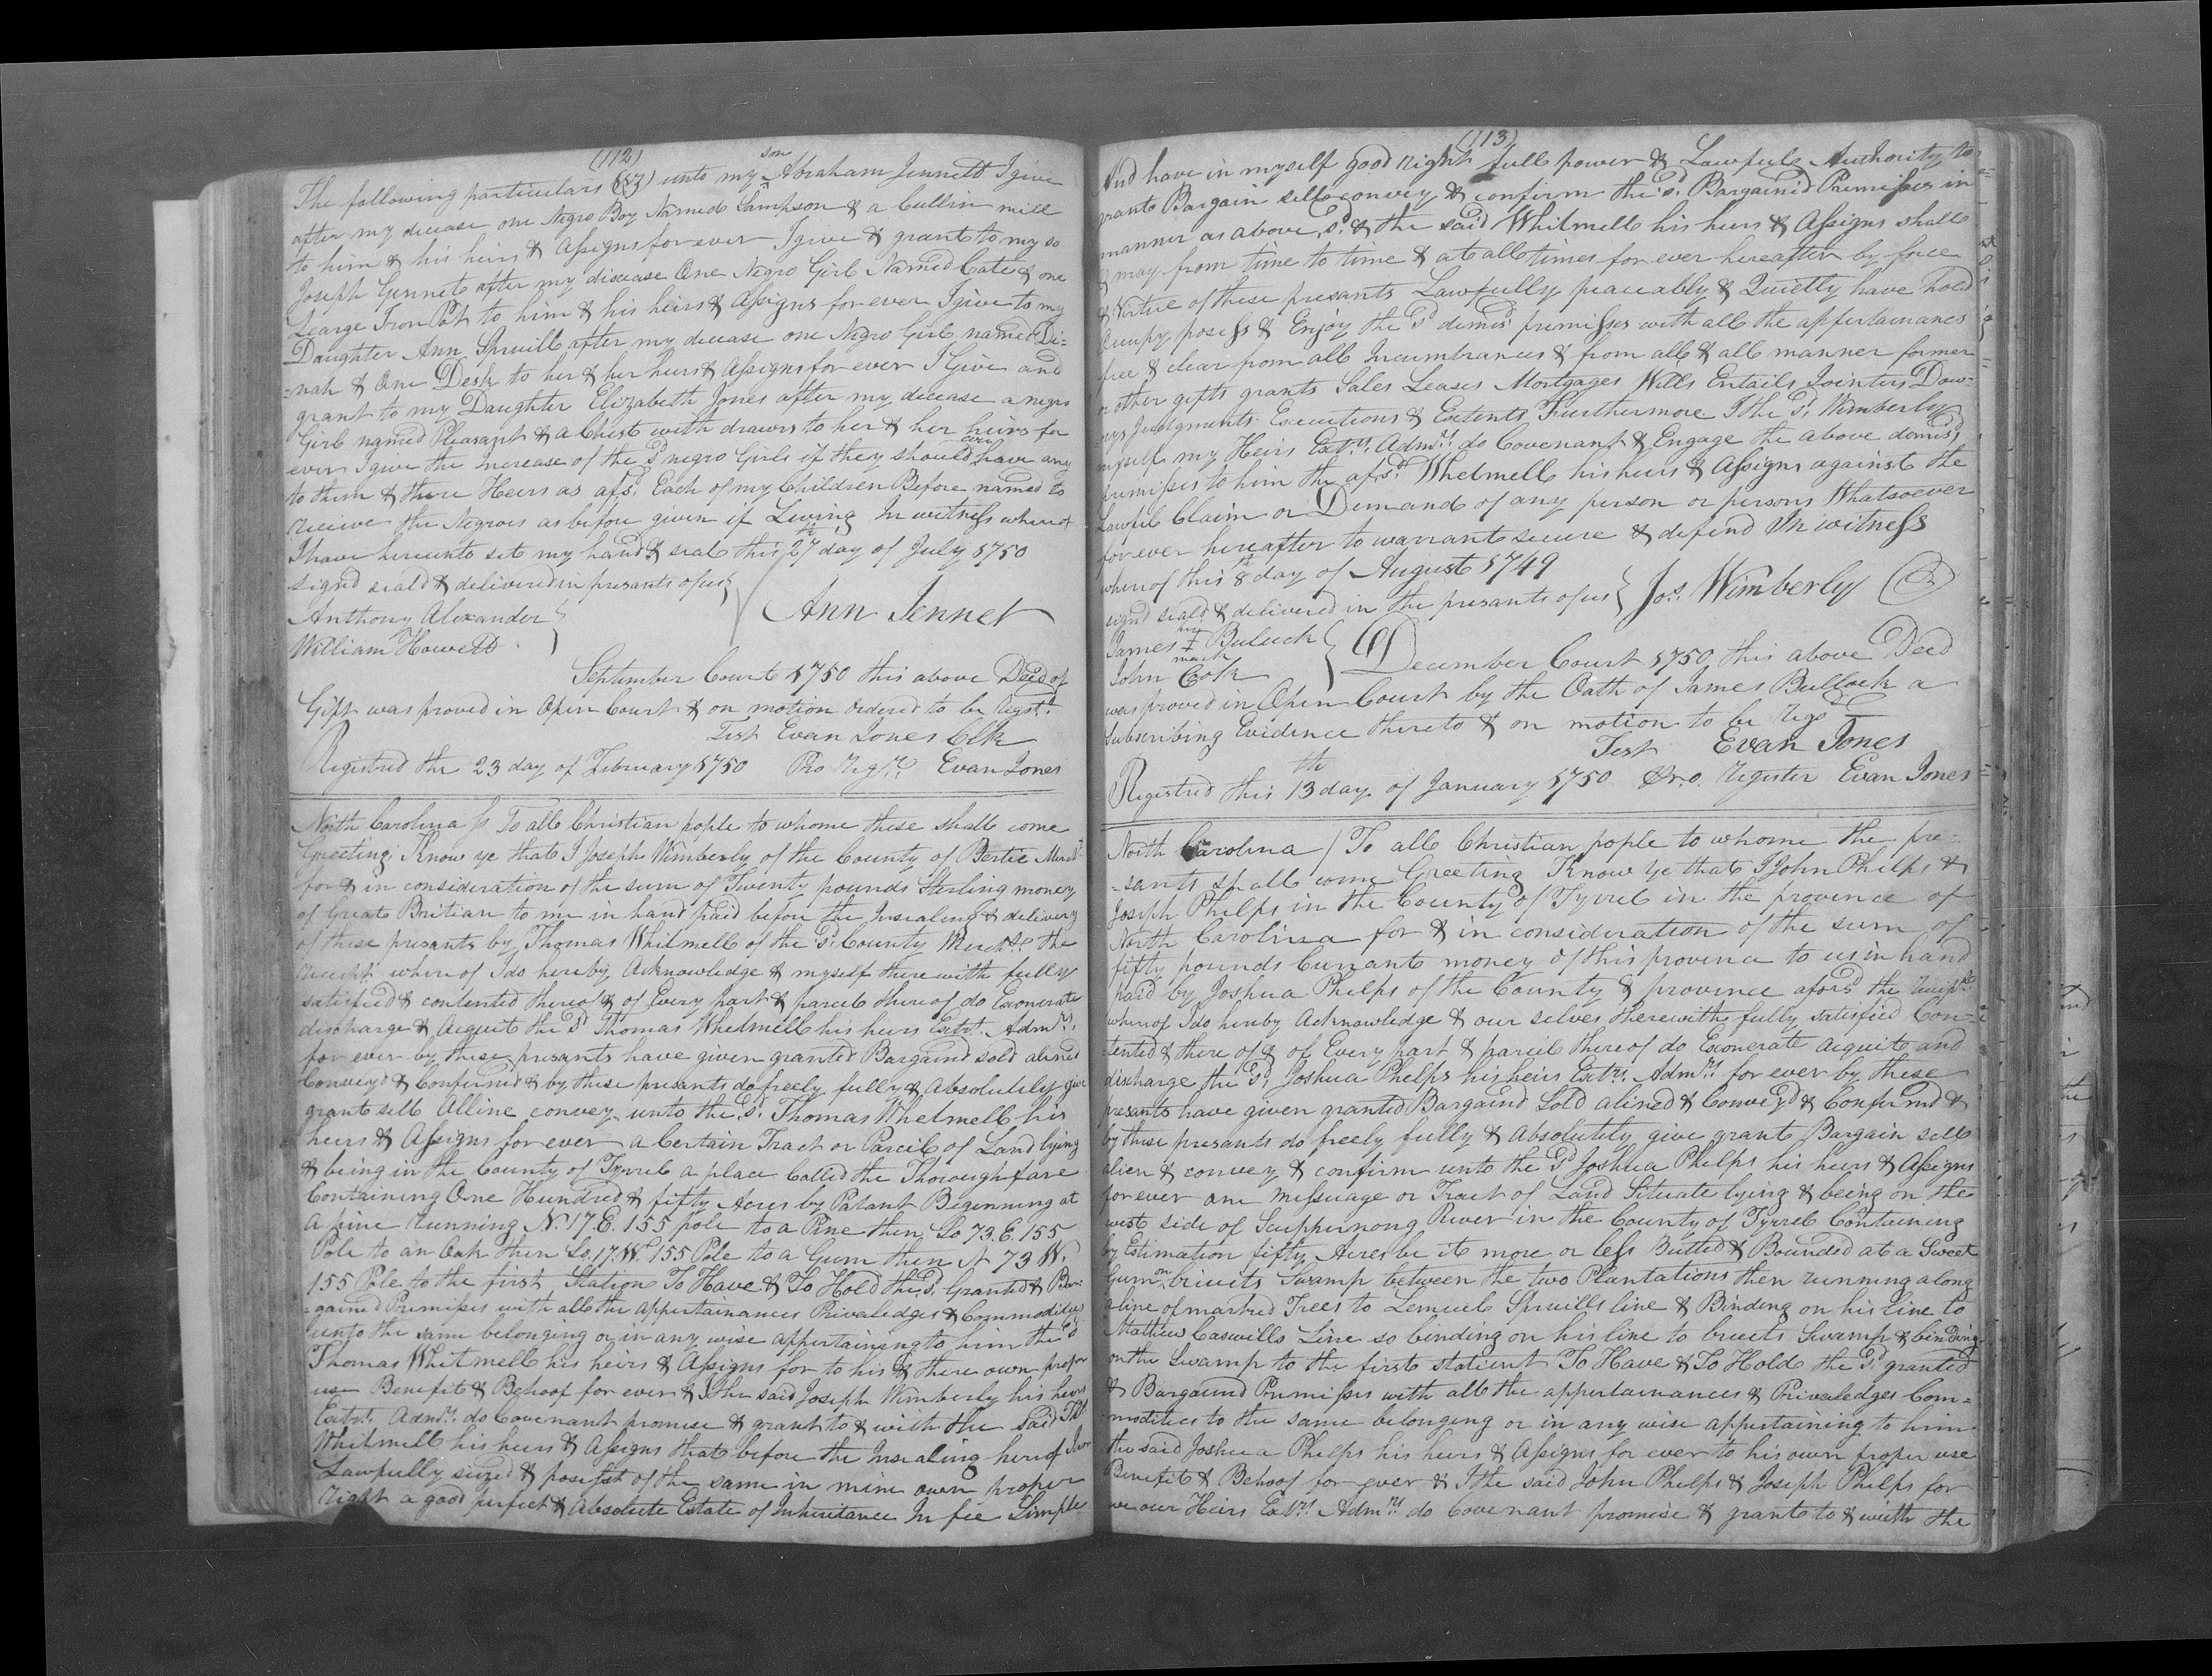 (112)
The following particulars (Viz) unto my son Abraham Jennett I give
after my decease one Negro Boy Named Sampson & a Cullin mill
to him & his heirs & Assigns for ever I give & grant to my so
Joseph Gennet after my disease One Negro Girl Named Cate & one
Learge Iron Pot to him & his heirs & Assigns for ever I give to my
Daughter Ann Spruill after my decease one Negro Girl named Di=
-nah & One Desk to her & her heirs & Assigns for ever I Give and
grant to my Daughter Elizabeth Jones after my decease a negro
Girl named Pleasant & a Chest with drawrs to her & her heirs for
ever I give the Increase of the Sd negro Girls if they should ever have any
to them & there Heirs as afsd. Each of my Children Before named to
receive the Negroes as before given if Living In witness whereof
I have hereunto set my hand & seal this 27th day of July 1750
Signd seald & delivered in presants of us
Anthony Alexander
Ann Jennet
William Howett
September Court 1750 this above Deed of
Gift was proved in Open Court & on motion ordered to be Regstd.
Test Evan Jones Clk
Registred the 23 day of February 1750 Pro Regtr. Evan Jones
North Carolina ss To all Christian pople to whome these shall come
Greeting Know ye that I Joseph Wimberly of the County of Bertie Mercht.
for & in consideration of the sum of Twenty pounds Sterling money
of Great Britian to me in hand paid before the Insealing & delivery
of these presants by Thomas Whitmell of the Sd. County Mercht. the
receipt whereof I do hereby Acknowledge & myself there with fully
satisfied & contented thereof & of Every part & parcel thereof do Exonerate
discharge & Acquit the Sd Thomas Whetmell his heirs Extrs. Admrs.
for ever by these presants have given granted Bargaind sold aliened
Conveyd & Confermed & by these presants do freely fully & Absolutely give
grant sell Alline convey unto the Sd. Thomas Whetmell his
heirs & Assigns for ever a Certain Tract or Parcil of Land lying
& being in the County of Tyrrel a place Called the Thorough fare
Containing One Hundred & fifty Acres by Patant Beginning at
A pine running No. 17. E. 155 pole to a Pine then So 73. E. 155
Pole to an Oak then So. 17. W. 155 Pole to a Gum then N 73 W.
155 Pole to the first Station To Have & To Hold the Sd. Granted & Bar=
=gained Premisses with all the appertainances Privaledges & Commodities
unto the same belonging or in any wise appertaining to him the Sd
Thomas Whitmell his heirs & Assigns for to his & there own proper
use Benefit & Behoof for ever & I the said Joseph Wimberly his heirs
Extrs. Admrs. do Covenant promise & grant to & with the said Tho.
Whitmell his heirs & Assigns that before the Insealing hereof I am
Lawfully siezed & posesst of the same in mine own proper
right a good perfect & Absolute Estate of Inheritance In fee Simple
(113)
And have in myself good right full power & Lawfule Authority to
grant Bargain sell convey & confirm the sd. Bargained Premisses in
manner as above sd. & the said Whitmell his heirs & Assigns shall
& may from time to time & at all times for ever hereafter by force
& Virtue of these presants Lawfully peaceably & Quietly have hold
Occupy posess & Enjoy the Sd demisd premisses with all the appertainances
free & clear from all Incumbrances & from all & all manner former
or other gifts grants Sales Leases Mortgages Wills Entails Jointers Dow-
rys Judgments Executions & Extents Furthermore I the Sd. Wimberly
myself my Heirs Extrs. Admrs. do Covenant & Engage the above demisd
premisses to him the afsd. Whetmell his heirs & Assigns against the
Lawful Claim or Demand of any person or persons Whatsoever
for ever hereafter to warrant secure & defend In witness
whereof this 8th day of August 1749
signd seald & delivered in the presants of us Jos. Wimberly
James his mark Buluck
John Cook
December Court 1750 this above Deed
was proved in Open Court by the Oath of James Bullock a
Subscribing Evidence thereto & on motion to be Regd
Test Evan Jones
Registred this 13th day of January 1750 Pr.o. Register Evan Jones
North Carolina / To all Christian pople to whome the pre-
-sants shall come Greeting Know Ye that I John Philps &
Joseph Phelps in the County of Tyrrel in the province of
North Carolina for & in consideration of the sum of
fifty pounds Currant money of this province to us in hand
paid by Joshua Phelps of the County & province aforsd the receipt
whereof I do hereby Acknowledge & our selves therewith fully satisfied Con-
-tented & there of & of Every part & parcil thereof do Exonerate Acquit and
discharge the Sd. Joshua Phelps his heirs Extrs. Admrs for ever by these
presants have given granted Bargaind Sold aliened & Conveyd & Confirmd &
by these presants do freely fully & Absolutely give grant Bargain sell
alien & convey & confirm unto the Sd Joshua Phelps his heirs & Assigns
for ever one Messuage or Tract of Land Situate lying & being on the
west side of Scuppernong River in the County of Tyrrel Containing
by Estimation fifty Acres be it more or less Butted & Bounded at a Sweet
Gum on bruits Swamp between the two Plantations then running along
a line of marked Trees to Lemuel Spruills line & Binding on his line to
Mathew Caswills Line so binding on his line to bruets Swamp & binding
on the Swamp to the first statient To Have & To Hold the Sd. granted
& Bargaind Premisses with all the appertainances & Privaledges Com=
-modities to the same belonging or in any wise appertaining to him
the said Joshua Phelps his heirs & Assigns for ever to his own proper use
Benefit & Behoof for ever & I the said John Phelps & Joseph Phelps for
we our Heirs Extrs. Admrs do Covenant promise & grant to & with the